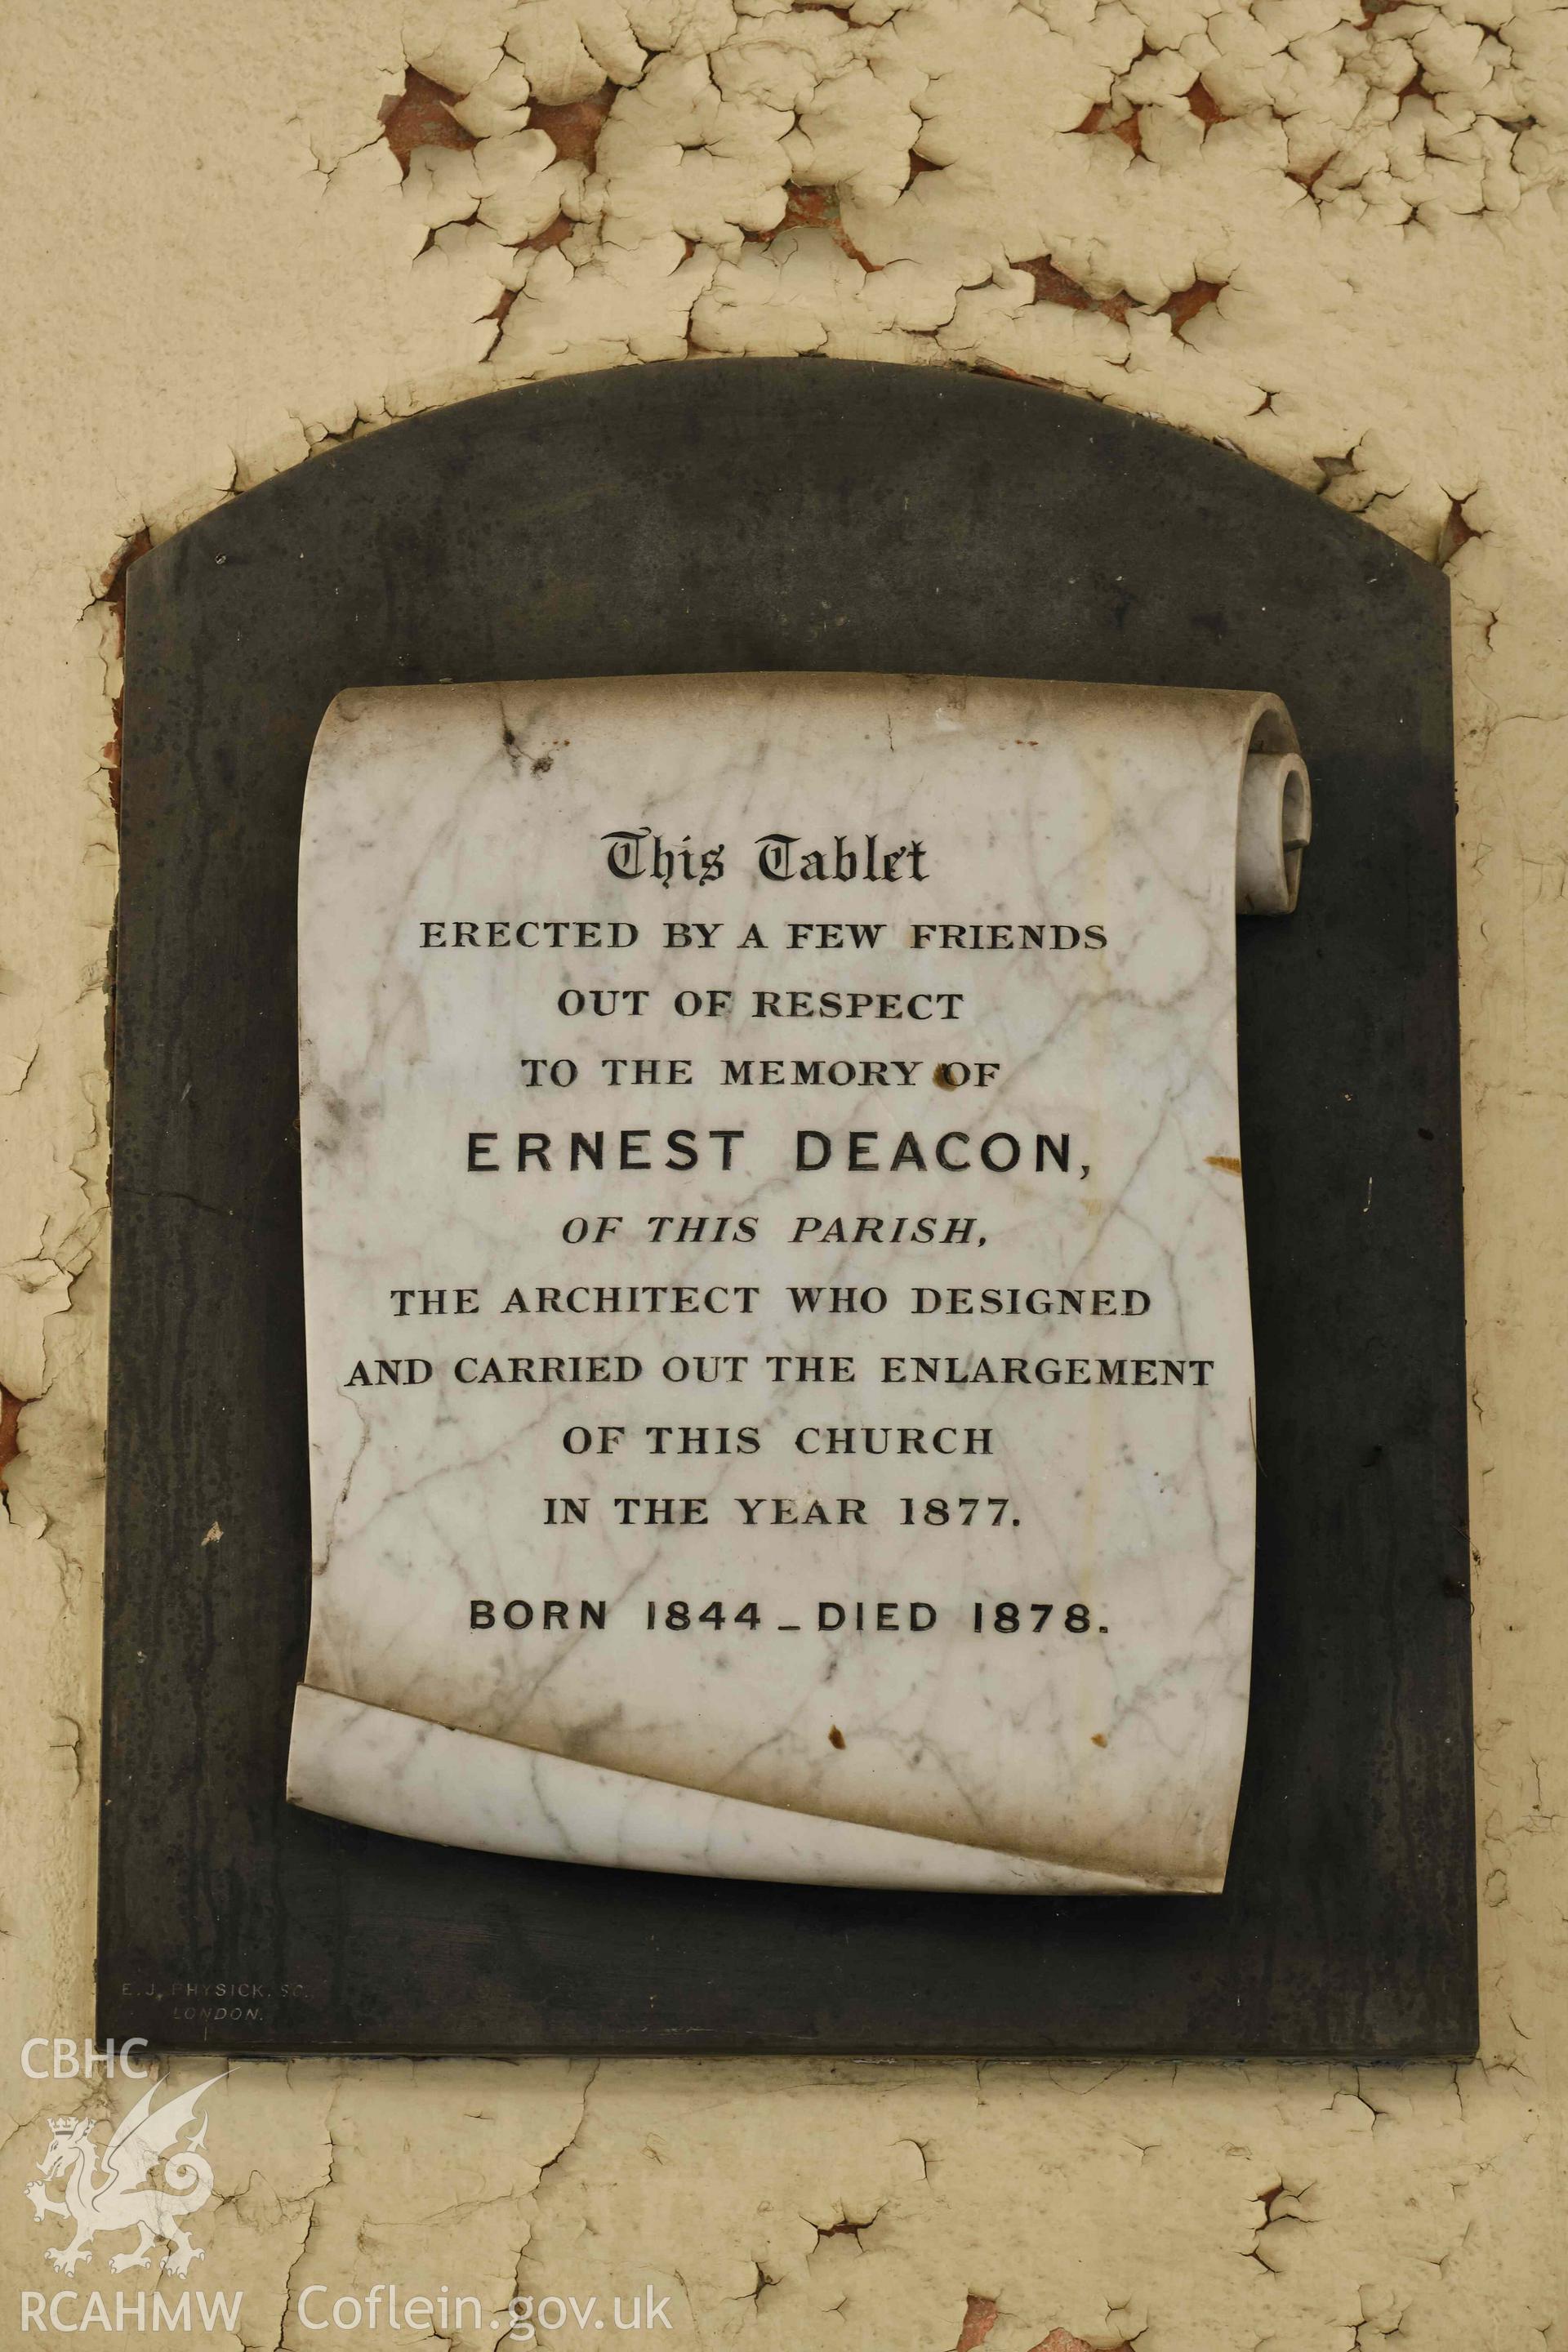 This Tablet
ERECTED BY A FEW FRIENDS
OUT OF RESPECT
TO THE MEMORY OF
ERNEST DEACON,
OF THIS PARISH,
THE ARCHITECT WHO DESIGNED
AND CARRIED OUT THE ENLARGEMENT
OF THIS CHURCH
IN THE YEAR 1877.
BORN 1844 _ DIED 1878.
E. J. PHYSICK, SC.
LONDON.
CBHC
RCAHMW Coflein.gov.uk